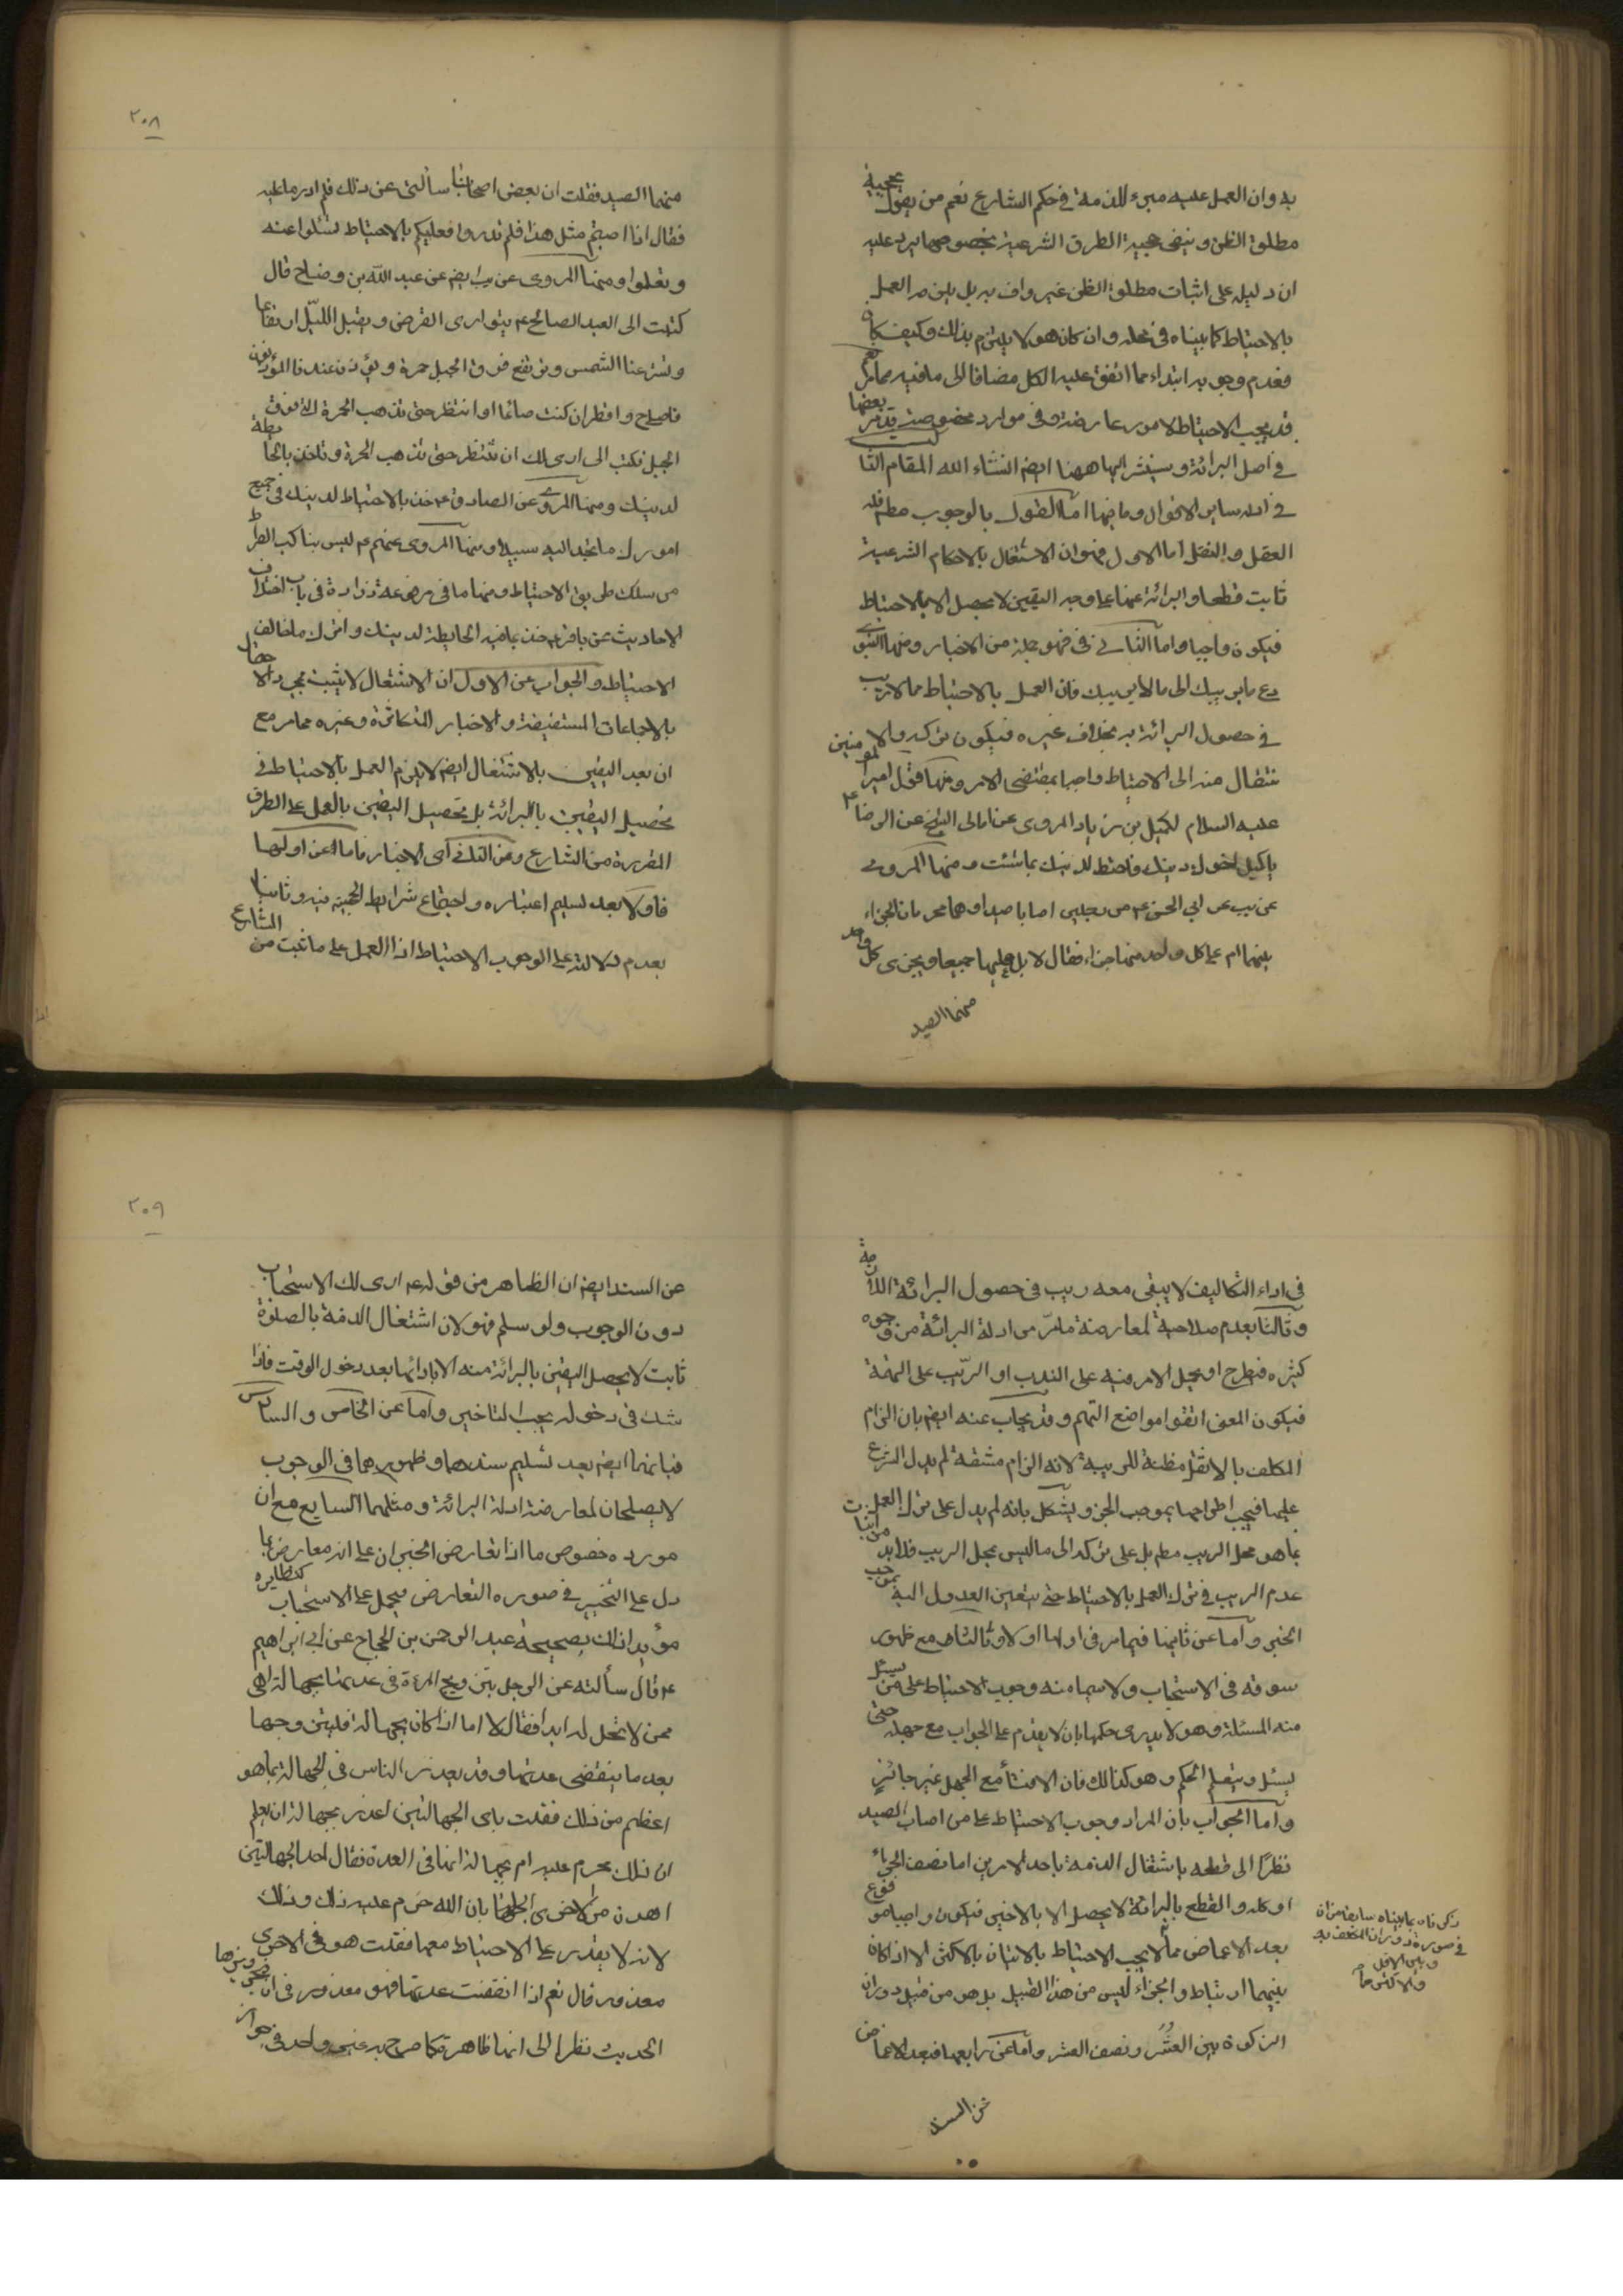 به وان العمل عليه مبرء للذمة فى حكم الشارع نعم من يقول بحجية
مطلق الظن وينفى حجية الطرق الشرعية بخصوصها يرد عليه
ان دليله على اثبات مطلق الظن غير واف به بل يلزمه العمل
بالاحتياط كما بيناه فى محله وان كان هو لا يلتزم بذلك وكيف كان
فعدم وجوبه ابتداء مما اتفق عليه الكل مضافا الى ما فيه مما مر نعم
قد يجب الاحتياط لامور عارضة وفى موارد مخصوصة قد مر بعضها
فى اصل البرائة وسنشير اليها ههنا ايضا انشاء الله المقام الثا
فى ادلة ساير الاقوال وما فيها اما القول بالوجوب مطم فله
العقل والنقل اما الاول فهو ان الاشتغال بالاحكام الشرعية
ثابت قطعا والبرائة عنها على وجه اليقين لا يحصل الا بالاحتياط
فيكون واجبا واما الثانى فهو جملة من الاخبار ومنها النبوى
دع ما يريبك الى ما لا يريبك فان العمل بالاحتياط مما لا ريب
فى حصول البرائة به بخلاف غيره فيكون تركه والا
نتقال منه الى الاحتياط واجبا بمقتضى الامر ومنها قول امير المومنين
عليه السلام لكميل بن زياد المروى عن امالى الشيخ عن الرضا ع
ياكميل اخوك دينك فاحتط لدينك بما شئت ومنها المروى
عن يب عن ابى الحسن ع من رجلين اصابا صيدا وهما محرمان الجزاء
بينهما ام على كل واحد منهما جزاء فقال لا بل عليهما جميعا ويجزى كل واحد
منهما الصيد
٢٠٨
منهما الصيد فقلت ان بعض اصحابنا سألنى عن ذلك فلم ادر ما عليه
فقال اذا اصبتم مثل هذا فلم تدروا فعليكم بالاحتياط تسئلوا عنه
وتعلموا ومنها المروى عن يب ايضا عن عبد الله بن وضاح قال
كتبت الى العبد الصالح ع يتوارى القرص ويقبل الليل ارتفاعا
وتستر عنا الشمس وترتفع فوق الجبل حمرة ويؤذن عندنا المؤذنون
فاصلى وافطر ان كنت صائما او انتظر حتى تذهب الحمرة التى فوق
الجبل فكتب الى ارى لك ان تنتظر حتى تذهب الحمرة وتاخذ بالحايطة
لدينك ومنها المروى عن الصادق ع خذ بالاحتياط لدينك فى جميع
امورك ما تجد اليه سبيلا ومنها المروى عنهم ع ليس بناكب الصراط
من سلك طريق الاحتياط ومنها ما فى مرفوعة زرارة فى باب اختلاف
الاحاديث عن باقر ع خذ بما فيه الحايطة لدينك واترك ما خالف
الاحتياط والجواب عن الاول ان الاشتغال لا يثبت بمجرد الا حتمال
بالاجماعات المستفيضة والاخبار المتكاثرة وغيره مما مر مع
ان بعد اليقين بالاشتغال ايضا لا يلزم العمل بالاحتياط فى
تحصيل اليقين بالبرائة بل تحصيل اليقين بالعمل على الطرق
المقررة من الشارع وعن الثانى اى الاخبار فاما عن اولها
فاولا بعد تسليم اعتباره واجتماع شرايط الحجية فيه وثانيا
بعدم دلالته على الوجوب الاحتياط اذا العمل على ما ثبت من الشارع
فى اداء التكاليف لا يبقى معه ريب فى حصول البرائة اللازمة
وثالثا بعدم صلاحية لمعارضة ما مر من ادلة البرائة من وجوه
كثيره فيطرح او يحمل الامر فيه على الندب او الريب على التهمة
فيكون المعنى اتقوا مواضع التهم وقد يجاب عنه ايضا بان الزام
المكلف بالاثقل مظنة للريبة لانه الزام مشقة لم يدل الشرع
عليها فيجب اطراحها بموجب الخبر ويشكل بانه لم يدل على ترك العمل
بما هو محل الريب مطم بل على تركه الى ما ليس بمحل الريب فلابد من اثبات
عدم الريب فى ترك العمل بالاحتياط حتى يتعين العدول اليه بموجب
الخبر واما عن ثانيها فيما مر فى اولها اولا وثالثا مع ظهور
سوقه فى الاستحباب ولا سيما منه وجوب الاحتياط على من سئل
منه المسئلة وهو لا يدرى حكمها بان لا يقدم على الجواب مع جهله حتى
يسئل ويتعلم الحكم وهو كذالك فان الافتأ مع الجهل غير جائز
واما الجواب بان المراد وجوب الاحتياط على من اصاب الصيد
نظرًا الى قطعه باشتغال الذمة باحد الامرين اما نصف الجزاء
او كله والقطع بالبرائة لا يحصل الا بالاخير فيكون واجبا فموقوع
بعد الاغماض مما لا يجب الاحتياط بالاتيان بالاكثر الا اذا كان
بينهما ارتباط والجزاء ليس من هذا القبيل بل هو من قبيل دوران
الزكوة بين العشر ونصف العشر واما عن رابعها فبعد الاغماض
عن السند
ذكرناه بما بيناه سابقا من ان
فى صورة دوران المكلف به
وبين الاقل
والاكثر
٢٠٩
عن السند ايضا ان الظاهر من قوله ع ارى لك الاستحباب
دون الوجوب ولو سلم فهو لان اشتغال الذمة بالصلوة
ثابت لا يحصل اليقين بالبرائة منه الا بادائها بعد دخول الوقت فاذا
شك فى دخوله يجب التاخير واما عن الخامس والسادس
فبانهما ايضا بعد تسليم سندهما وظهورهما فى الوجوب
لا يصلحان لمعارضة ادلة البرائة ومثلهما السابع مع ان
مورده خصوص ما اذا تعارض الخبران على انه معارض بما
دل على التخيير فى صوره التعارض فيحمل على الاستحباب كنظايره
مؤيدا ذلك بصحيحة عبد الرحمن بن الحجاج عن ابى ابراهيم
ع قال سألته عن الرجل يتزويج المرءة فى عدتها بجهالة اهى
ممن لا تحل له ابدا فقال لا اما اذا كان بجهالة فليتزوجها
بعد ما ينقضى عدتها وقد يعذر الناس فى الجهالة بما هو
اعظم من ذلك فقلت باى الجهالتين اعذر بجهالة ان يعلم
ان ذلك محرم عليه ام بجهالة انها فى العدة فقال احد الجهالتين
اهون من الاخرى الجهالة بان الله حرم عليه ذلك وذلك
لانه لا يقدر على الاحتياط معها فقلت هو فى الاخرى
معذور قال نعم اذا انقضت عدتها فهو معذور فى ان يتزوجها
الحديث نظرا الى انها ظاهرة كما صرح به غير واحد فى جواز